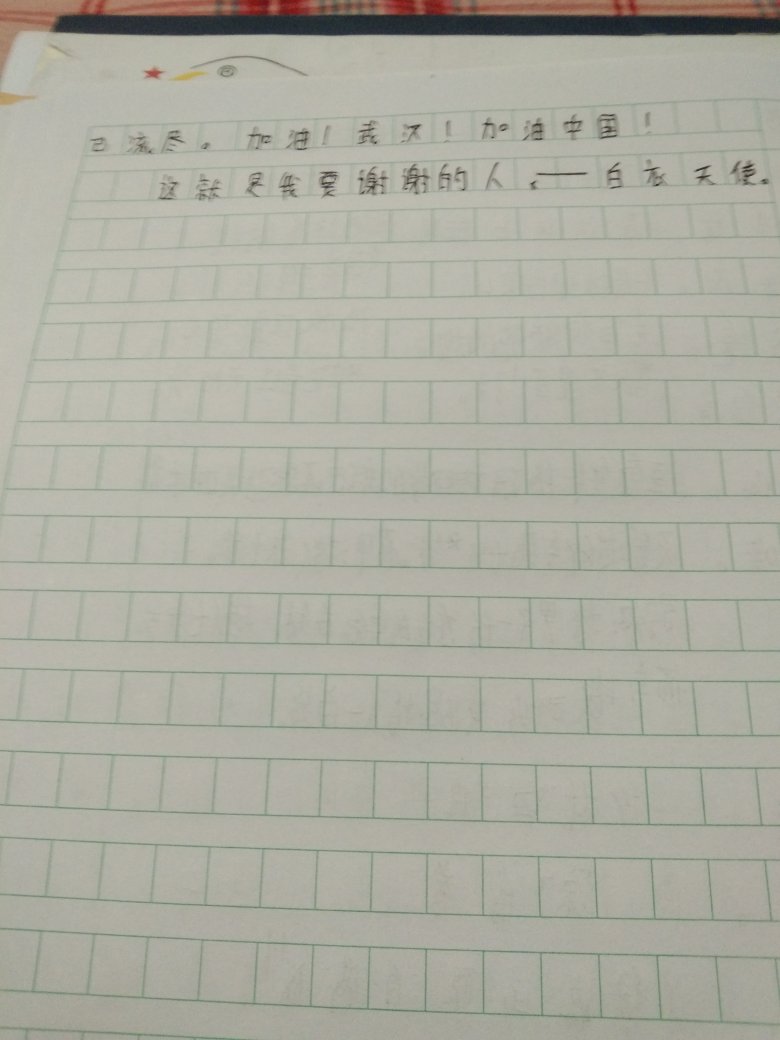 已流尽。加油！武汉！加油中国！
这就是我要谢谢的人，——白衣天使。